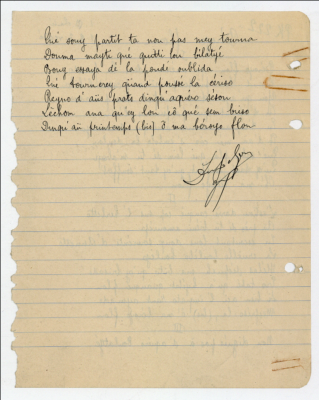 Qué souy partit ta nou pas mey tourna
Douma mayti que quitti lou bilatjé
Bouy essaya de la poude oublida
Qué tournerey quand pousse la cériso
Reyno d'aüs prats dinqu'aquero sesou
Lechem ana qu'ey lou cò que sem briso
Dinqu'aü printemps (bis) ô ma béroyo flou